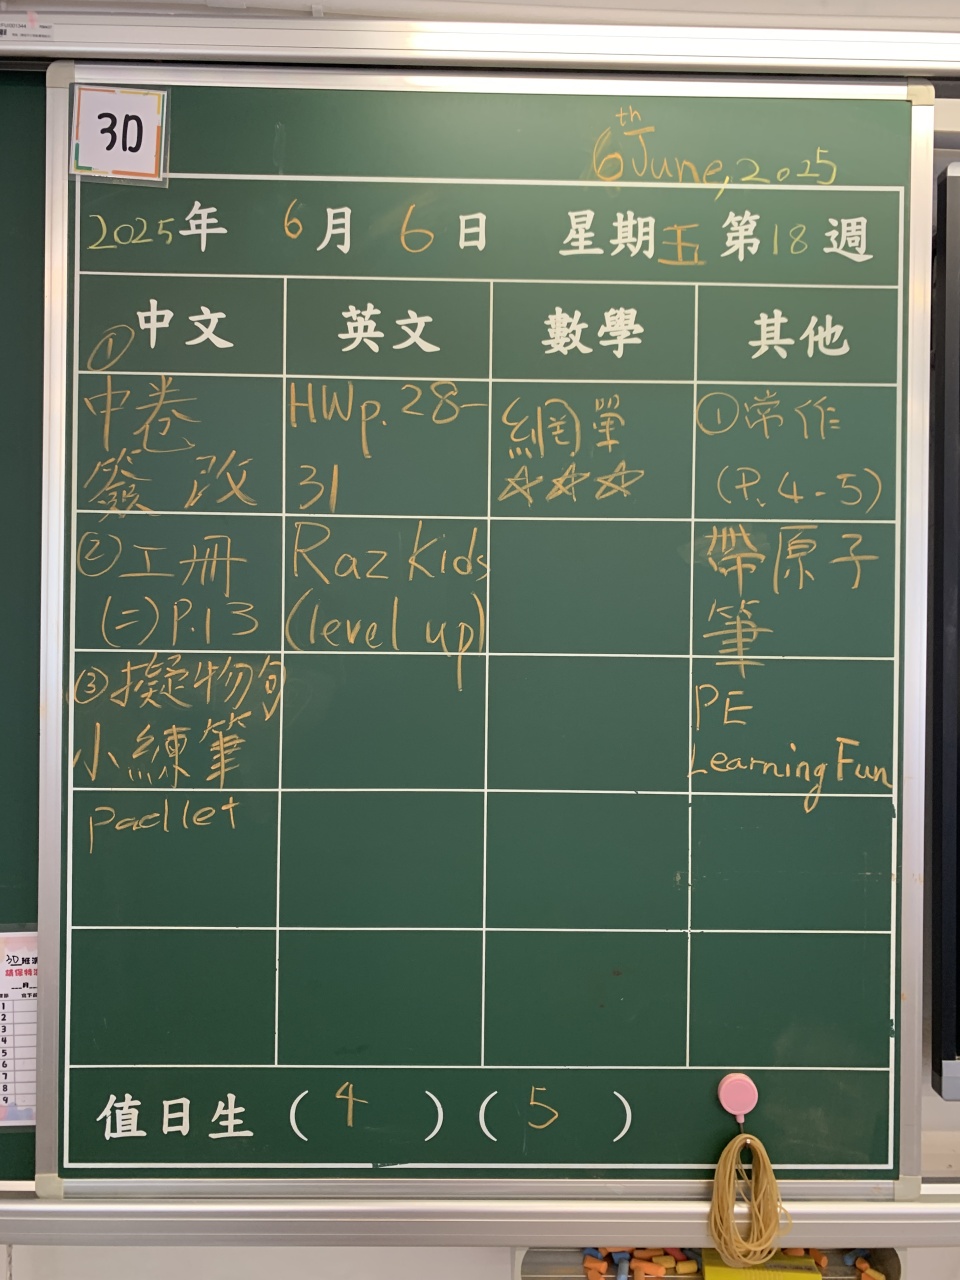 3D
6th June, 2025
2025年 6月6日 星期五 第18週
中文 英文 數學 其他
①中卷
簽 改
HWp. 28-
31
網單
☆☆☆
①常作
(P.4-5)
②工冊
(二)P.13
Raz Kids
(level up)
帶原子
筆
③擬物句
小練筆
PE
Learning Fun
padlet
值日生 ( 4 ) ( 5 )
3D班
1
2
3
4
5
6
7
8
9